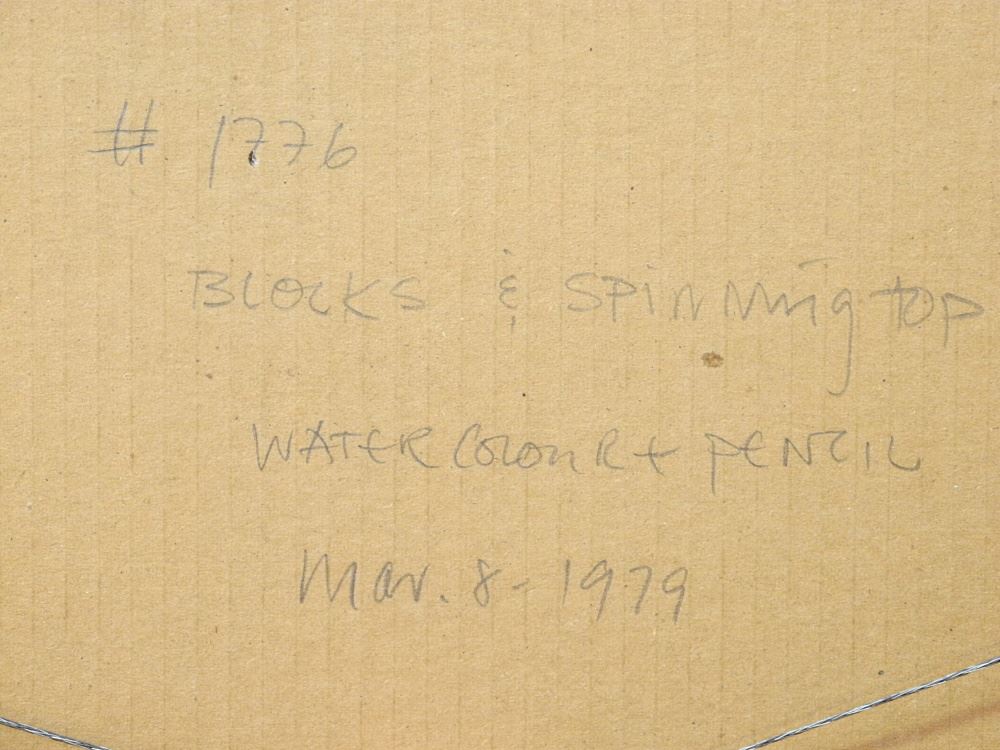 # 1776
BLOCKS & SPiNNiNg top
WATERCOLOUR + PENCIL
Mar. 8 - 1979